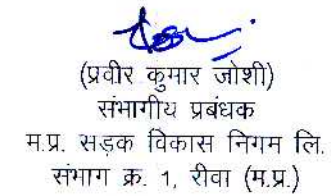 (प्रवीर कुमार जोशी)
संभागीय प्रबंधक
म.प्र. सड़क विकास निगम लि.
संभाग क्र. 1, रीवा (म.प्र.)